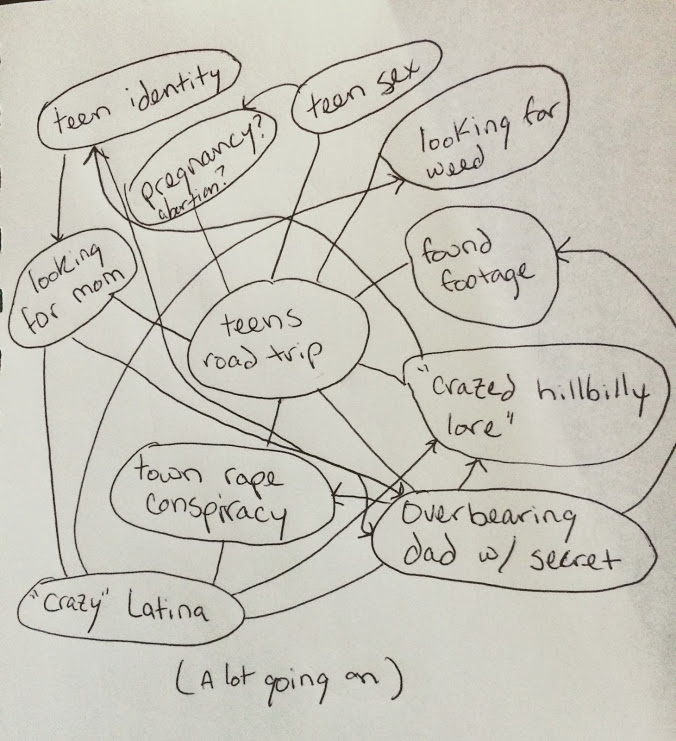 teen identity
teen sex
looking for
weed
pregnancy?
abortion?
looking
for mom
found
footage
teens
road trip
"crazed hillbilly
lore"
town rape
conspiracy
Overbearing
dad w/ secret
"crazy" Latina
(A lot going on)